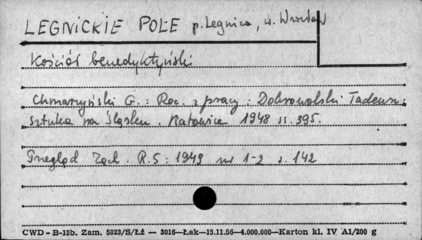 LEGNICKIE POLE p. Legnica, w. Wrocław
Kościół benedyktyński
Chmarzyński G. : Rec. z pracy : Dobrowolski Tadeusz.
Sztuka na Śląsku. Katowice 1948 ss. 395.
Przegląd Zach. R.5 : 1949 nr 1-2 s. 142
CWD - B-15b. Zam. 5823/S/ŁŻ — 3016—Łak—15.11.56—4.000.000—Karton kl. IV A1/200 g